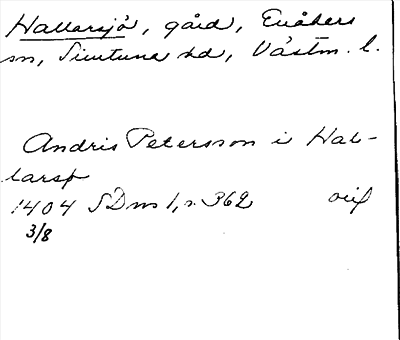 Hallarsjö, gård, Enåkers
sn, Simtuna hd, Västm. l.
Andris Petersson i Hal-
larsp
1404 SDns 1, s. 362 orig
3/8